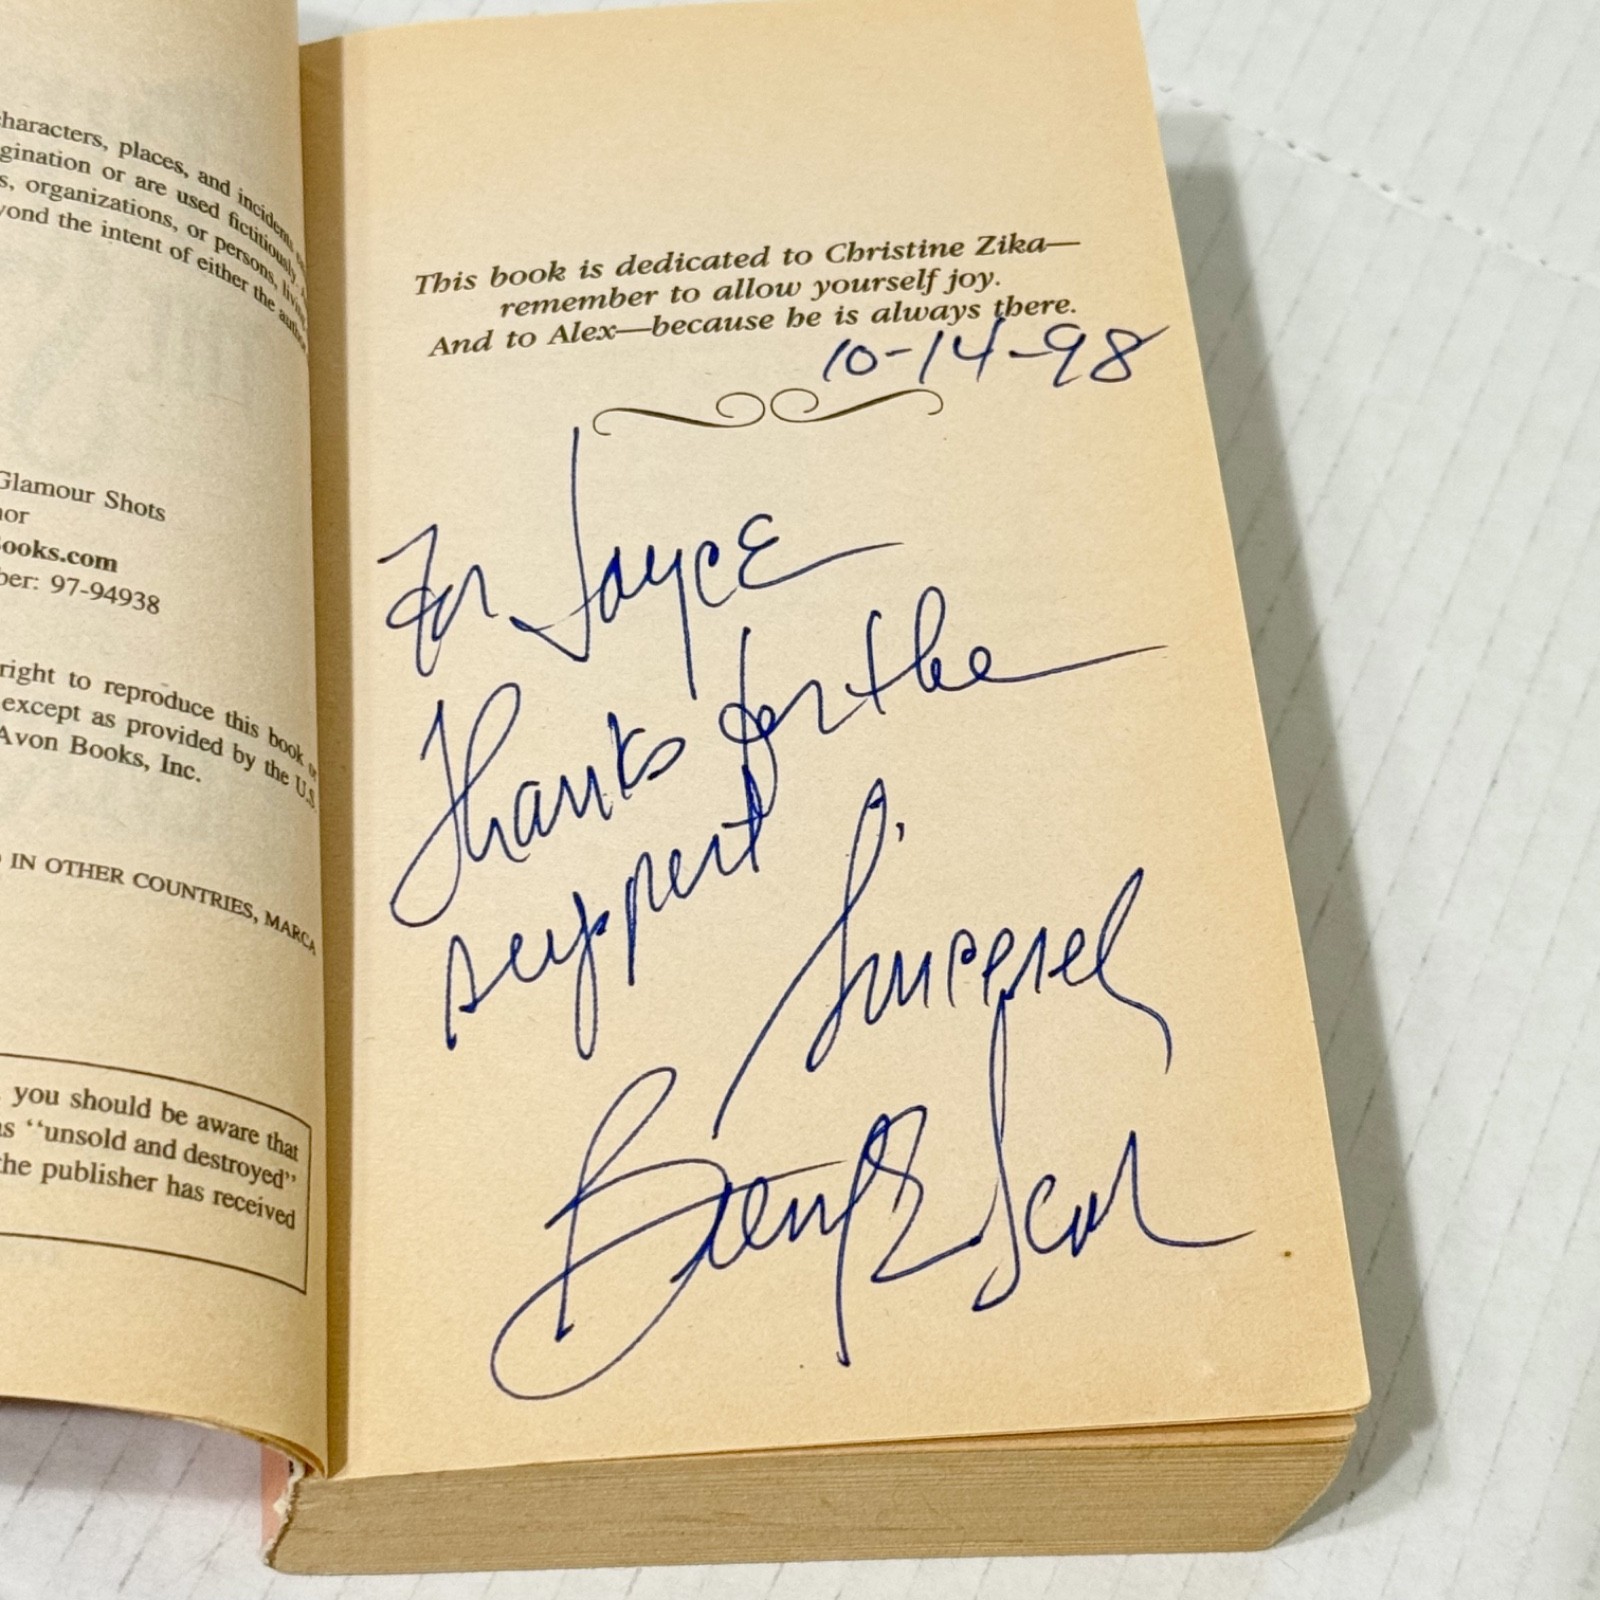 characters, places, and incidents
gination or are used fictitiously.
s, organizations, or persons, living
yond the intent of either the author
Glamour Shots
hor
Books.com
ber: 97-94938
right to reproduce this book or
except as provided by the U.S.
Avon Books, Inc.
IN OTHER COUNTRIES, MARCA
you should be aware that
as "unsold and destroyed"
the publisher has received
This book is dedicated to Christine Zika—
remember to allow yourself joy.
And to Alex—because he is always there.
10-14-98
For Joyce
Thanks for the
support
Sincerely